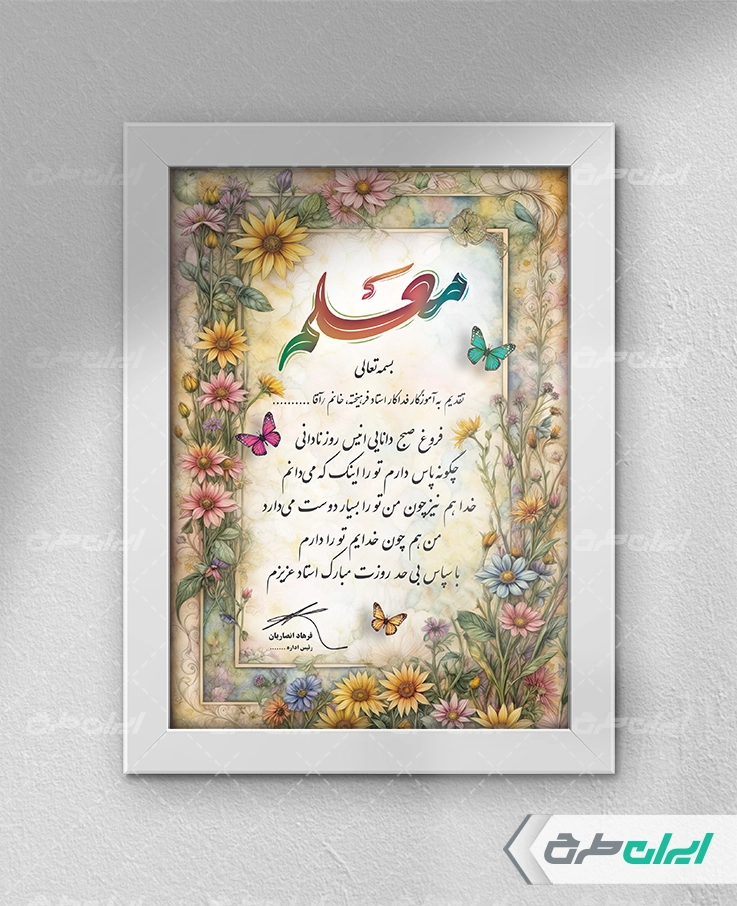 معلم
بسمه تعالی
تقدیم به آموزگار فداکار استاد فرهیخته، خانم /آقا ..........
فروغ صبح دانایی انیس روز نادانی
چگونه پاس دارم تو را اینک که می‌دانم
خدا هم نیز چون من تو را بسیار دوست می‌دارد
من هم چون خدایم تو را دارم
با سپاس بی حد روزت مبارک استاد عزیزم
فرهاد انصاریان
رئیس اداره .......
ایران طرح